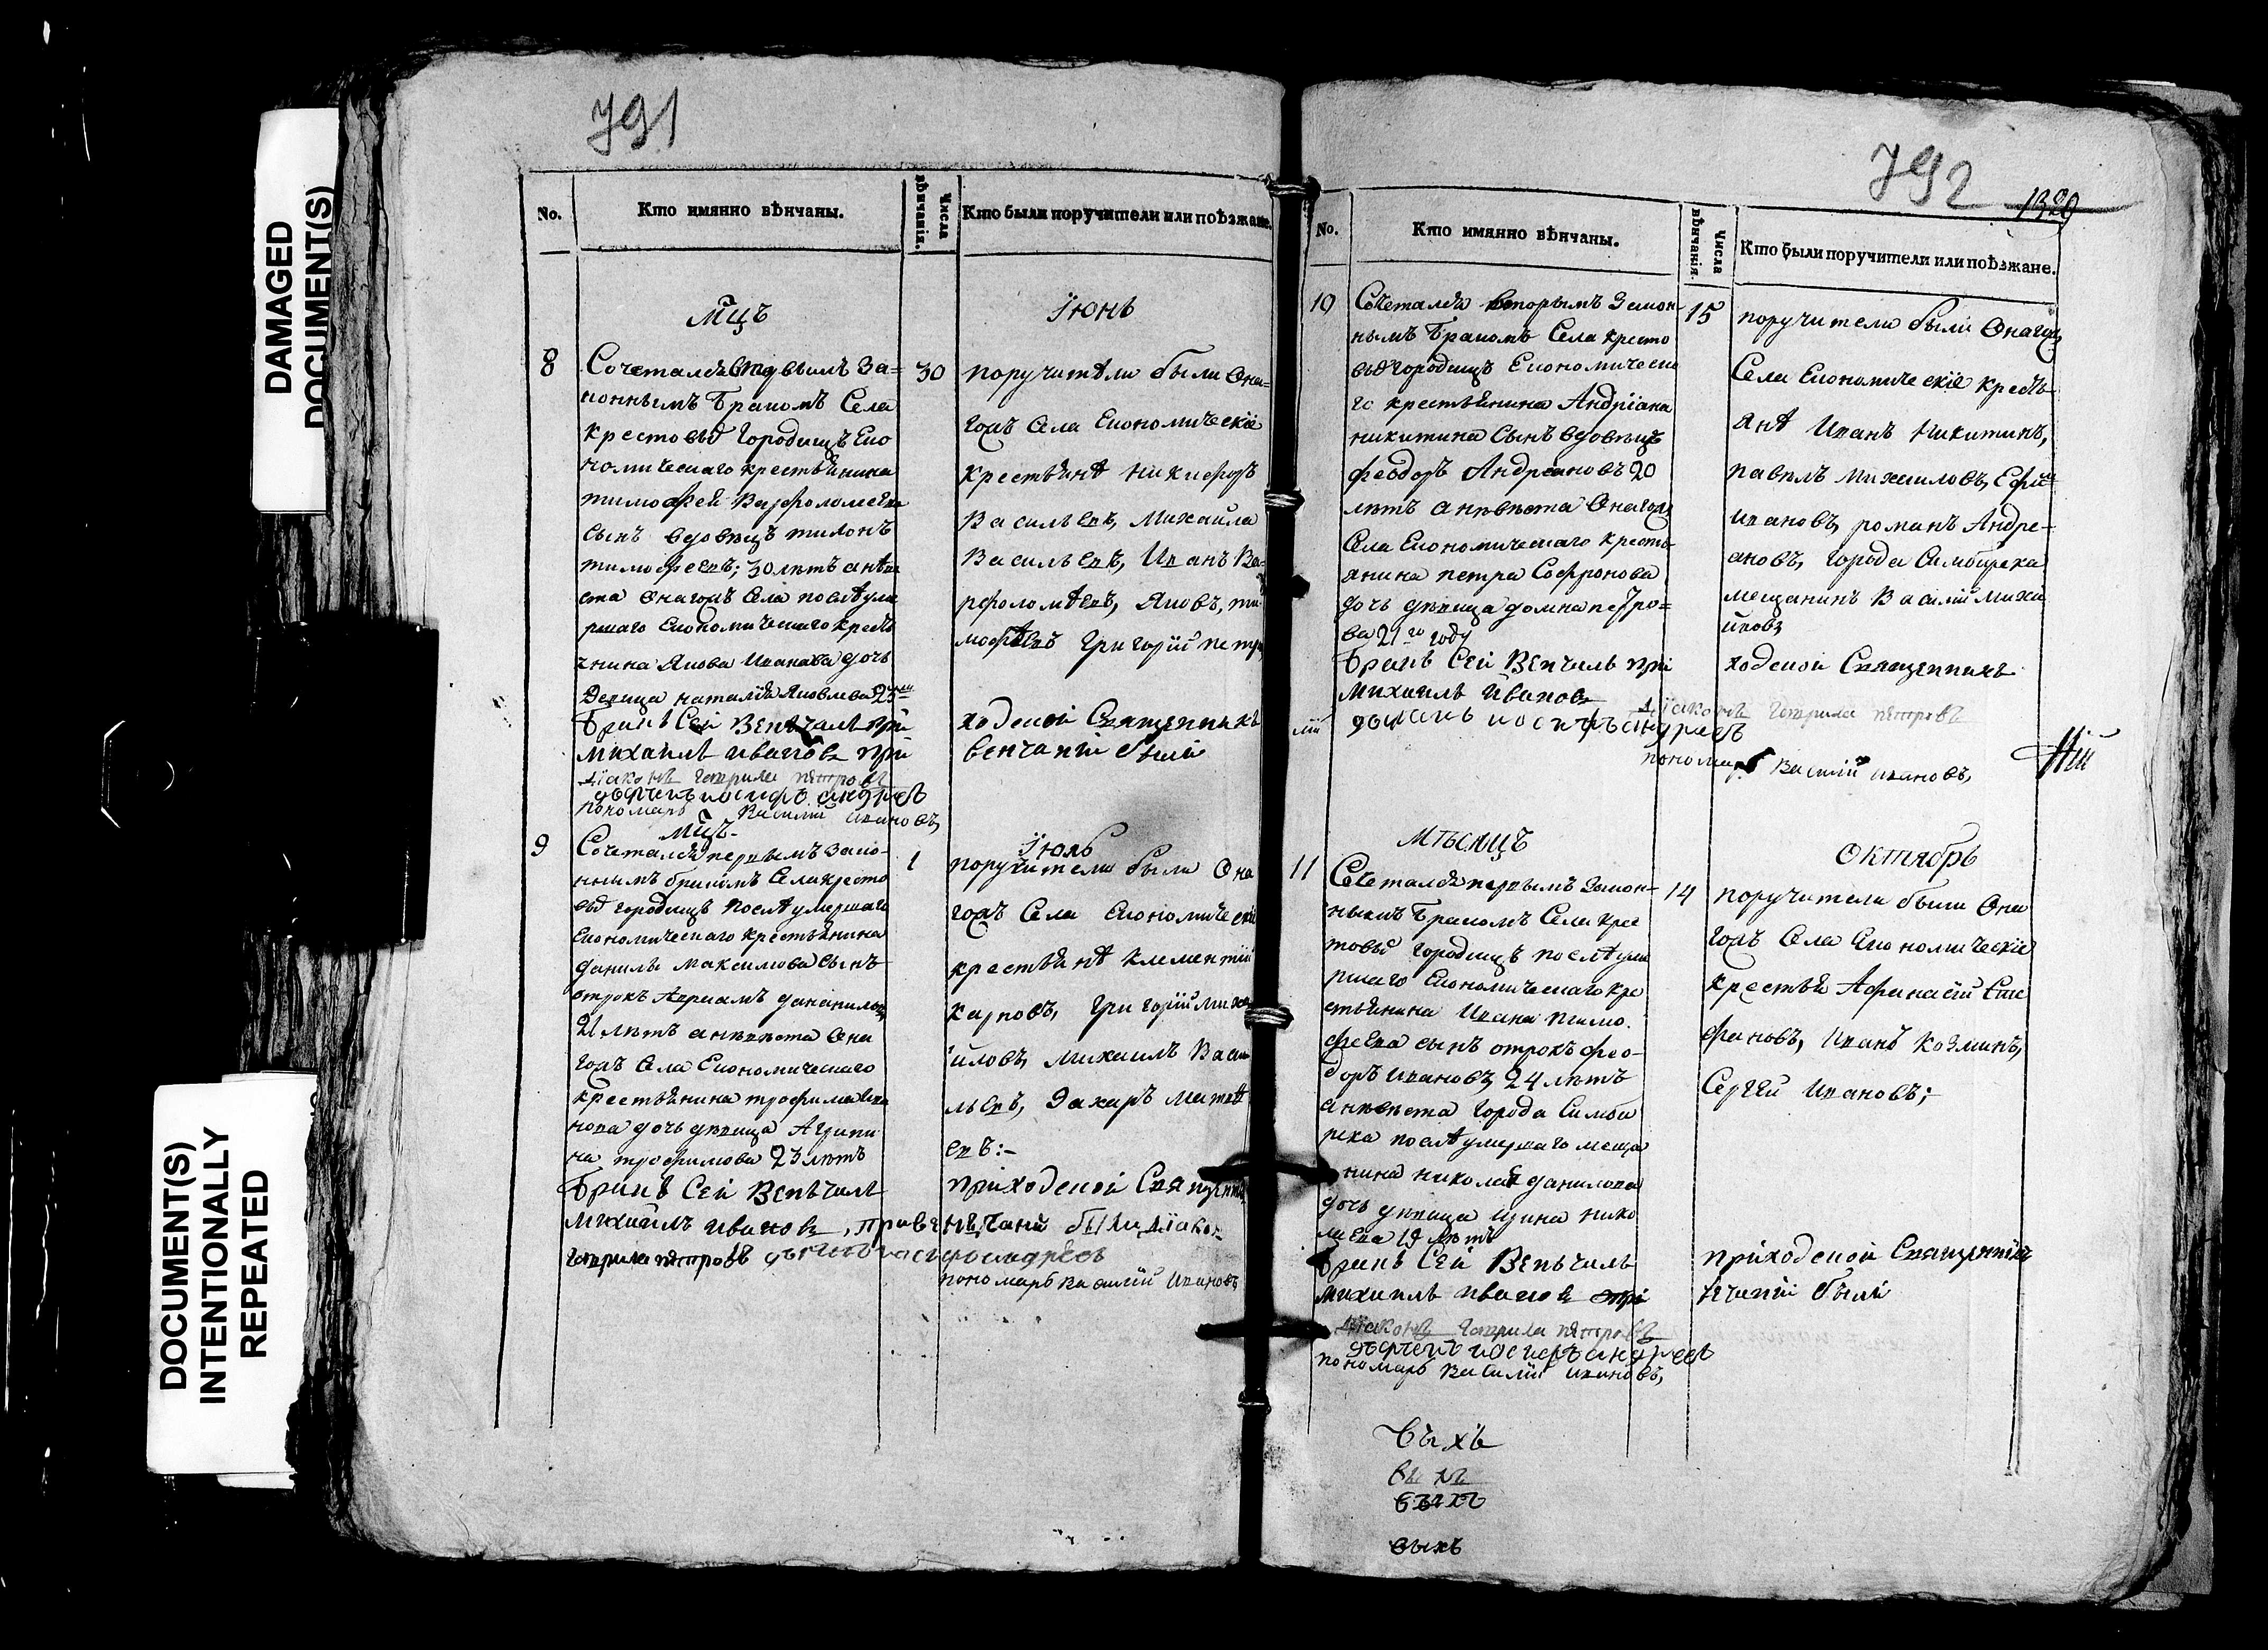 DAMAGED
DOCUMENT(S)
DOCUMENT(S)
INTENTIONALLY
REPEATED
791
No.
Кто имянно вѣнчаны.
Числа
вѣнчанія.
Кто были поручители или поѣзжане.
Мцъ
Іюнь
8
Сочетался вторымъ за=
коннымъ бракомъ Села
крестовы Городищъ Еко
номическаго крестьянина
тимофея Варфоломеева
сынъ вдовецъ
тимофеевъ; 30 лѣтъ а невѣ
ста онагожъ Села послѣ уме
ршаго Економическаго кресть
янина Якова Иванова дочь
Девица наталія Яковлева 25
бракъ Сей Венчалъ при
михаилъ ивановъ при
діаконъ гаврила петровъ
дьячекъ иосифъ андреевъ
пономарь Василий ивановъ
30
поручители были Она=
гожъ Села Економическіе
крестьянѣ Никифоръ
Васильевъ, Михайла
Васильевъ, Иванъ Ва=
рфоломѣевъ, Яковъ, ти
мофѣевъ Григорій петр
ходской Священникъ
венчаній были
мцъ
Іюль
9
Сочетался первымъ зако-
ннымъ бракомъ Села кресто
вы городищъ послѣ умершаго
Економическаго крестьянина
данилы максимова сынъ
отрокъ Авраамъ даниловъ
21 лѣтъ а невѣста Она
гожъ Села Економическаго
крестьянина трофима Ива
нова дочь девица Агрипи
на трофимова 23 лѣтъ
бракъ Сей Венчалъ
михаилъ ивановъ, при венчаній были діаконъ
гаврила петровъ дьячекъ иосифъ андреевъ
пономарь василій Ивановъ
1
поручители были Она
гожъ Села Економическіе
крестьянѣ клементій
карповъ, Григорій миха
йловъ, михаилъ Васи
льевъ, Захаръ матвѣ
евъ:-
приходской Священникъ
792
No.
Кто имянно вѣнчаны.
Числа
вѣнчанія.
Кто были поручители или поѣзжане.
10
Сочетался вторымъ Закон
нымъ бракомъ Села кресто
вы городищъ Економическа
го крестьянина Андріана
никитина Сынъ вдовецъ
феодоръ Андреяновъ 20
лѣтъ а невѣста Онагожъ
Села Економическаго кресть-
янина петра Софронова
дочь девица домна петро=
ва 21го году
бракъ Сей Венчалъ при
михаилъ Ивановъ
діаконъ гаврила петровъ
дьячекъ иосифъ андреевъ
пономарь Василій ивановъ,
15
поручители были Онагожъ
Села Економическіе кресть-
янѣ Иванъ Никитинъ,
павелъ михаиловъ, Ефи
ивановъ, романъ Андре-
ановъ, города Симбирска
мещанинъ Василій миха
йловъ
ходской Священникъ
мѣсяцъ
Октябрь
11
Сочетался первымъ Закон-
нымъ бракомъ Села крес
товы городищъ послѣ уме
ршаго Економическаго кре
стьянина Ивана тимо.
феева сынъ отрокъ фео-
доръ ивановъ, 24 лѣтъ
а невѣста города Симби
рска послѣ умершаго меща
нина николая данилова
дочь девица ирина нико
лаева 19 лѣтъ
бракъ Сей Венчалъ
михаилъ ивановъ при
діаконъ гаврила петровъ
дьячекъ иосифъ андреевъ
пономарь Василій ивановъ,
14
поручители были Она
гожъ Села Економическіе
крестьян Афанасій Сте
фановъ, Иванъ козминъ,
Сергей ивановъ;
приходской Священникъ
нчаній были